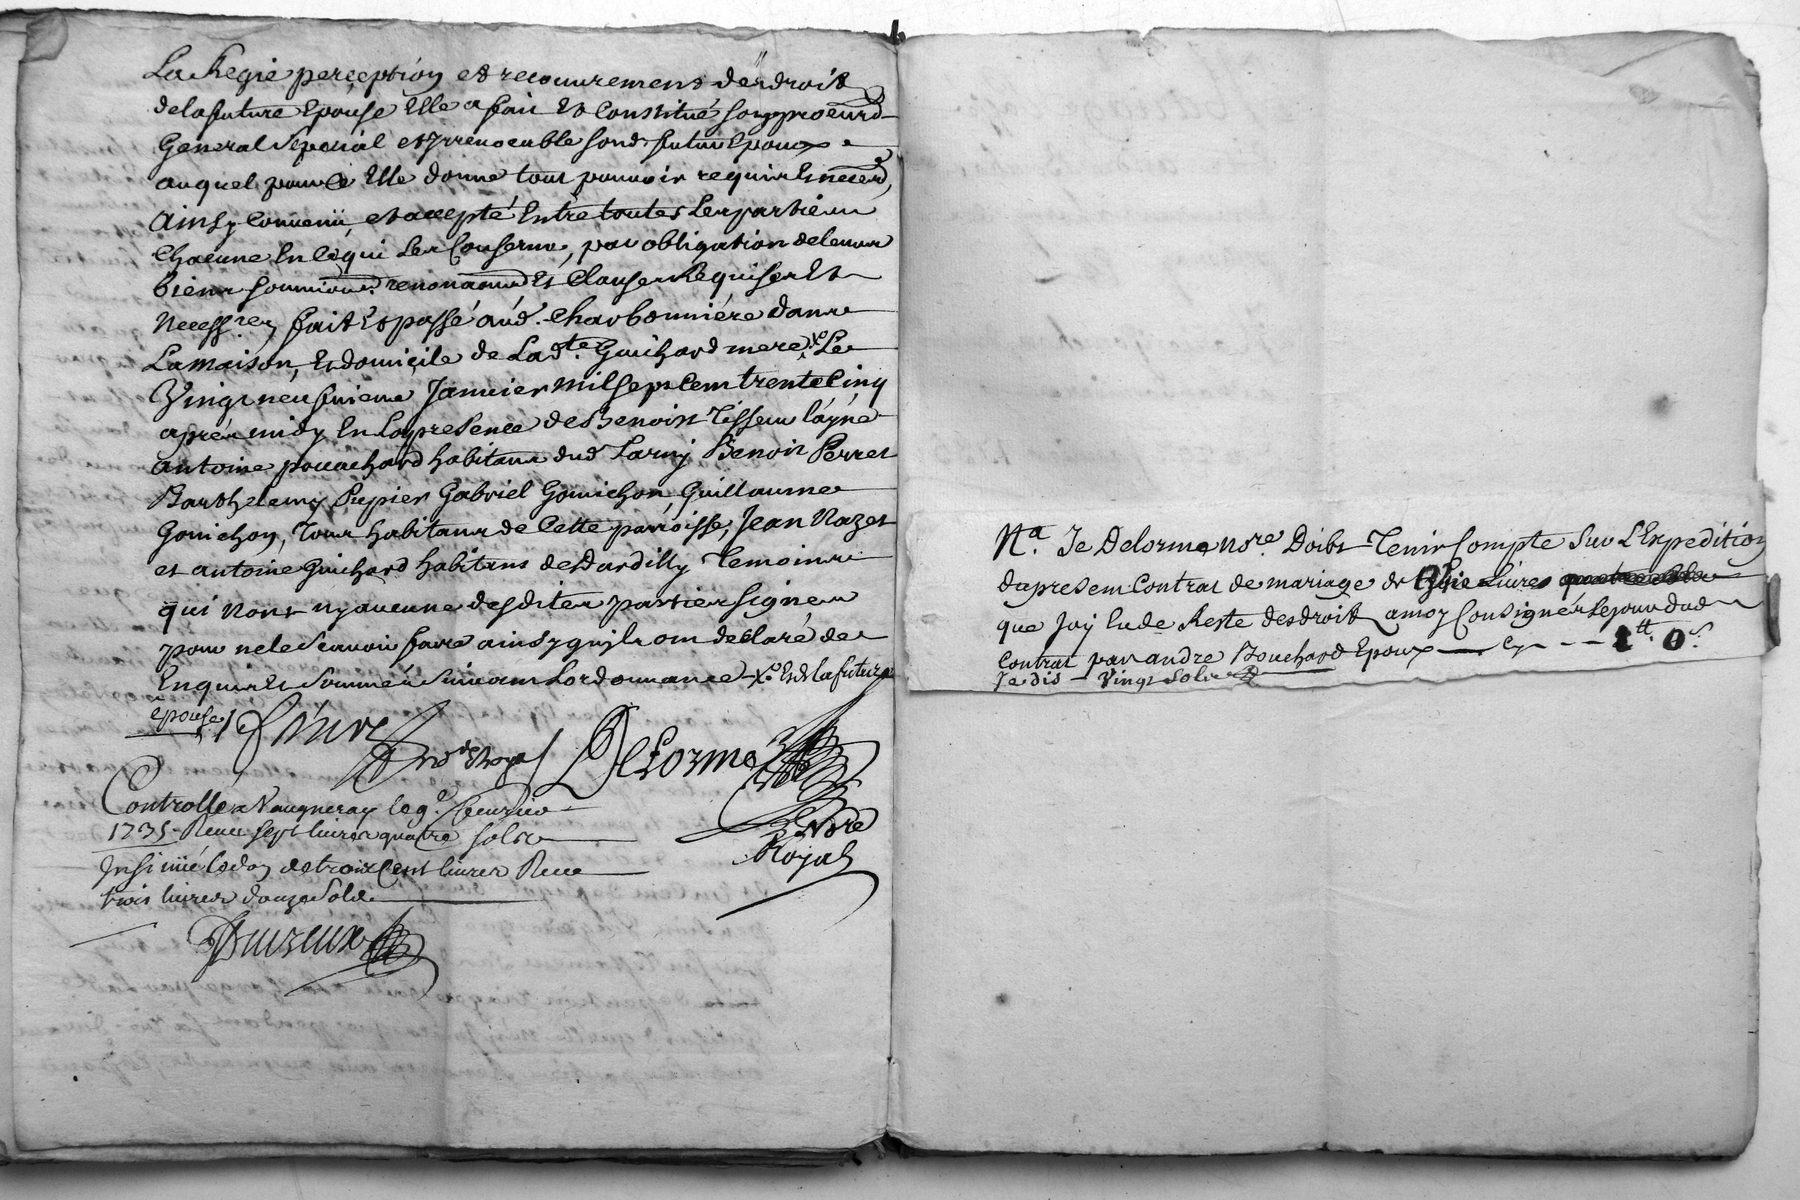 La Regie perception et recouvrement des droits
de la future Epouse Elle a fait Et Constitué son procureur
General Special et Irrevocable led. futur Epoux
auquel pour ce Elle donne tout pouvoir requis Et necess.
Ainsy Convenu, et accepté Entre toutes les parties
Chacune En ce qui les Conserne, par obligation de leurs
biens soumissions renonciaons Et Clauses Requises Et
Necess.res fait Et passé aud. Charbonniére dans
La maison, et domicile de Lad.te Guichard mere, x Le
Vingt neufvieme Janvier Mil sept Cent trente Cinq
aprés midy En la presence de Benoist Tisseur l'áyné
Antoine pouachard habitans dud Tarny Benoit Perret
Barthelemy Pupier Gabriel Gonichon, Guillaume
Gonichon, Tous habitans de Cette parroisse, Jean Nazet
et antoine Guichard habitans de Dardilly Temoins
qui n'ont ny aucune desdites parties signé
pour ne le Scavoir faire ainsy qu'ils ont declaré de
Enquis Et Sommés Suivant Lordonnance x Et de la future
epouse
No.re Royal DeLorme
Controllé a Vaugneray le 9.e feuvrier
1735 - Receu sept livres quatre sols
Insinüé le don de trois Cent livres Receu
trois livres douze Sols
No.re
Royal
N.a Je Delorme No.re Doibs Tenir Compte Sur L'Expedition
du present Contrat de mariage de livres
que Jay Eu de Reste des droits a moy Consignés le jour dud
Contrat par andre Bouchard Epoux Cy - - - 1.tt 0.s
Je dis - Vingt Sols